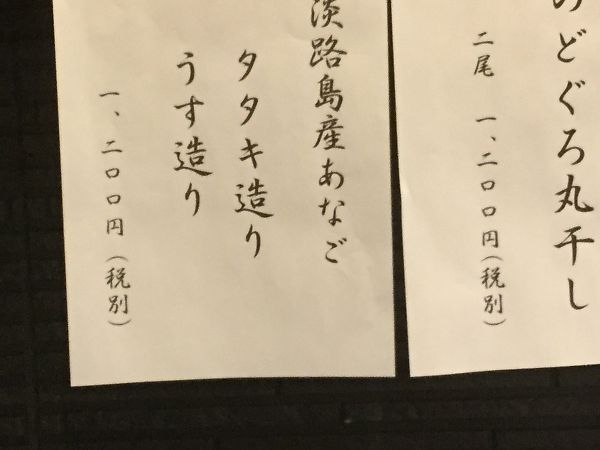 のどぐろ丸干し
二尾 一、二〇〇円（税別）
淡路島産あなご
タタキ造り
うす造り
一、二〇〇円（税別）